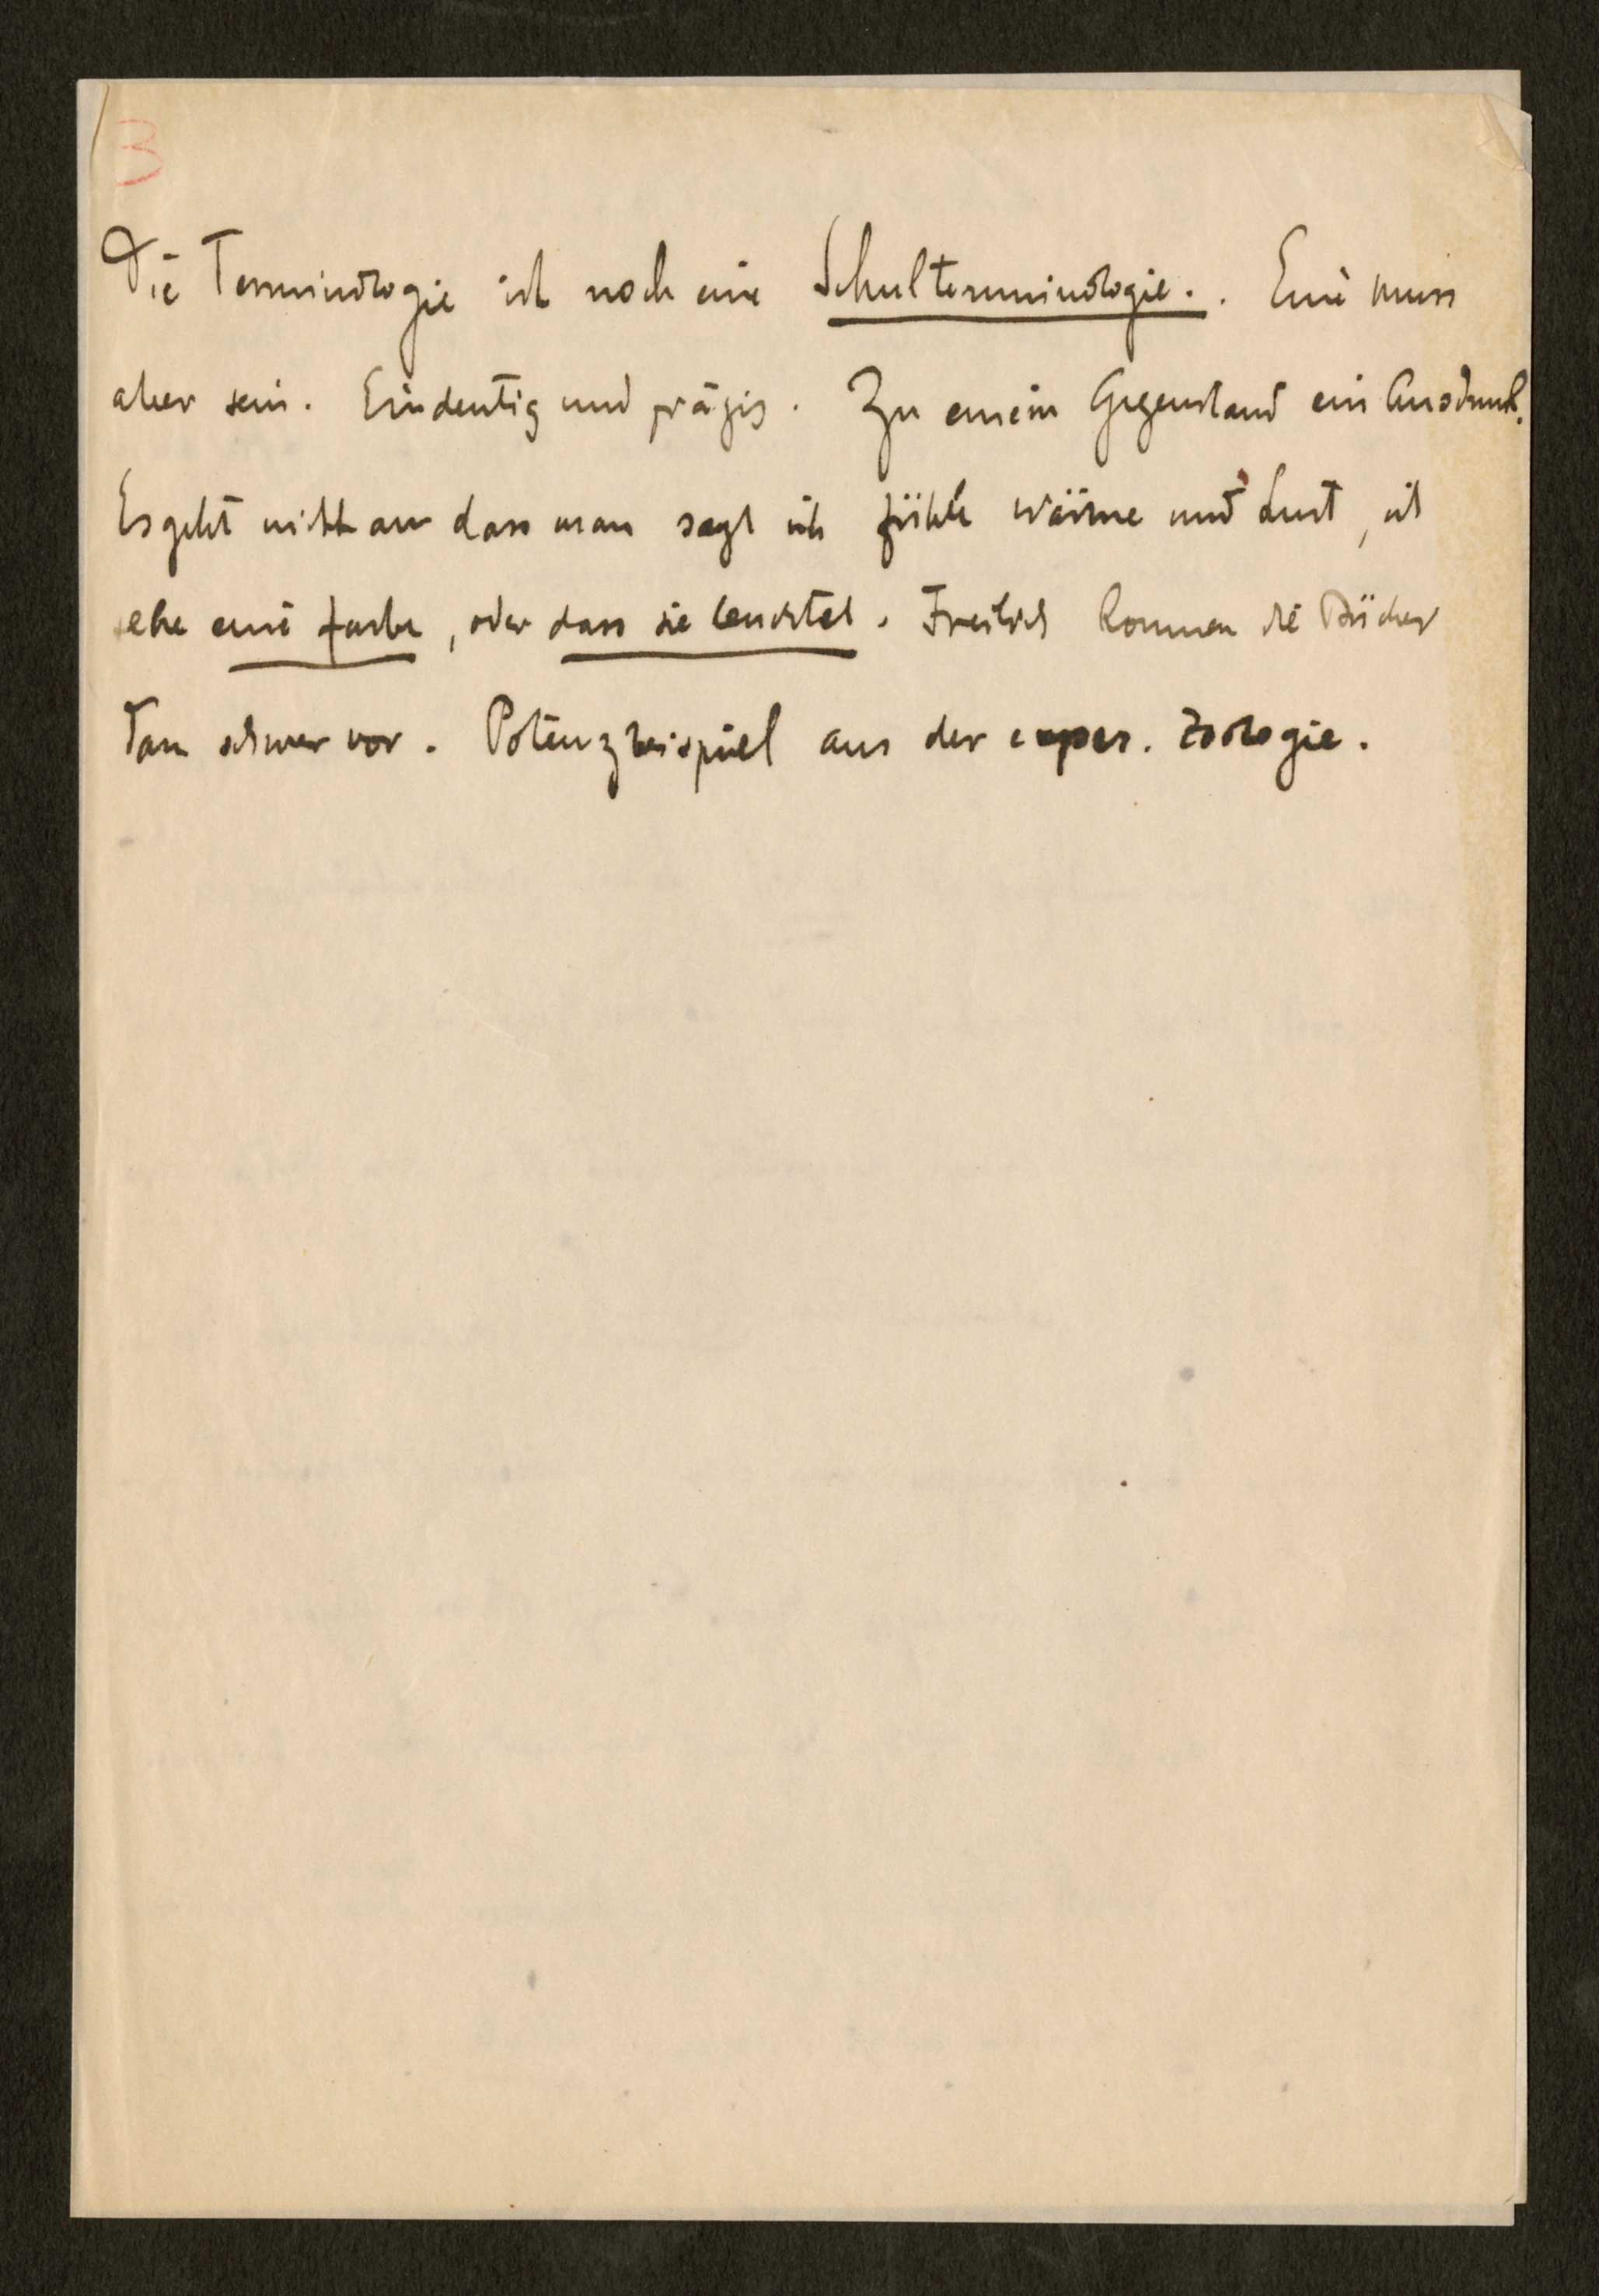 3
Die Terminologie ist noch eine Schulterminologie.. Eine muss
aber sein. Eindeutig und präzis. Zu einem Gegenstand ein Ausdruck.
Es geht nicht an dass man sagt ich fühle Wärme und Lust, ich
sehe eine Farbe, oder dass sie leuchtet. Freilich kommen die Bücher
dann schwer vor. Potenzbeispiel aus der exper. Zoologie.